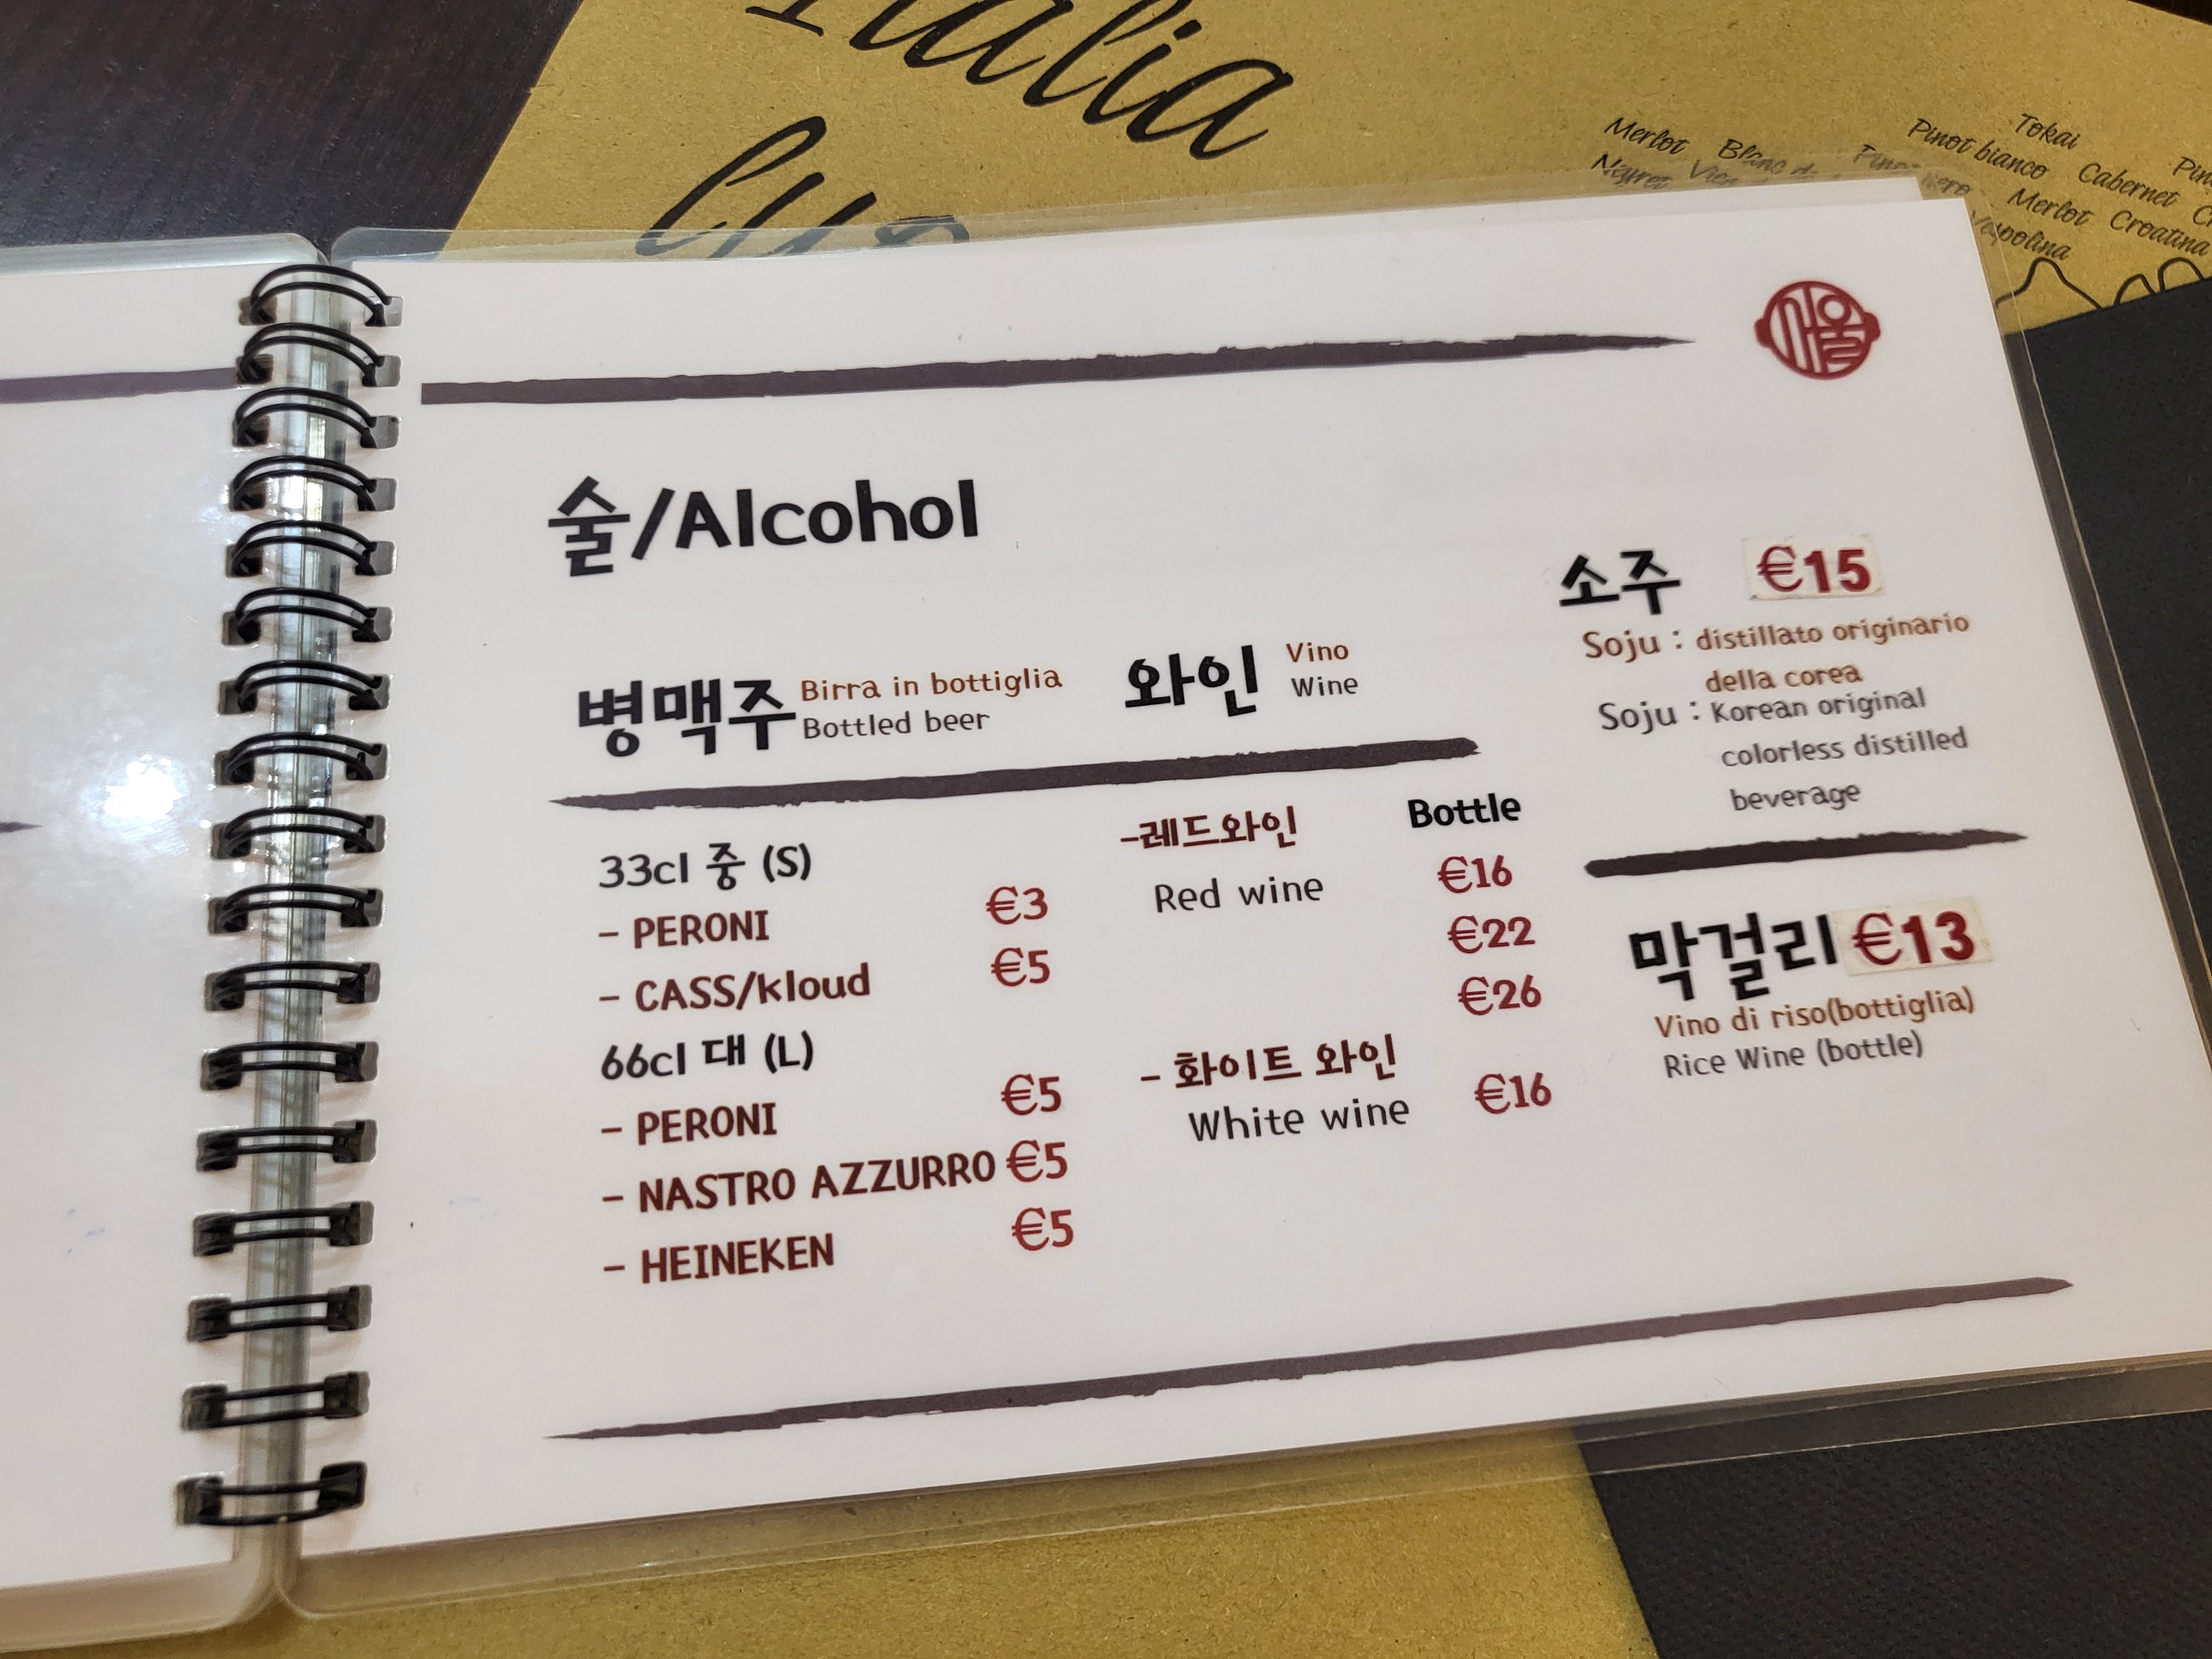 Italia
Merlot Blanc de
Pinot bianco
Tokai
Cabernet
Merlot Croatina
Vespolina
서울
술/Alcohol
병맥주 Birra in bottiglia
Bottled beer
33cl 중 (S)
- PERONI €3
- CASS/kloud €5
66cl 대 (L)
- PERONI €5
- NASTRO AZZURRO €5
- HEINEKEN €5
와인 Vino
Wine
Bottle
-레드와인
Red wine €16
€22
€26
- 화이트 와인
White wine €16
소주 €15
Soju : distillato originario
della corea
Soju : Korean original
colorless distilled
beverage
막걸리 €13
Vino di riso(bottiglia)
Rice Wine (bottle)